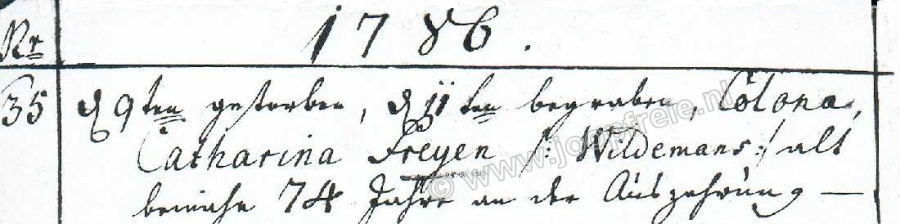 Nr 1786.
35 d 9ten gestorben, d 11ten begraben, Colona,
Catharina Freyen /: Wildemans :/ alt
beinahe 74 Jahre an der Auszehrung —
© www.jobnfreie.nl